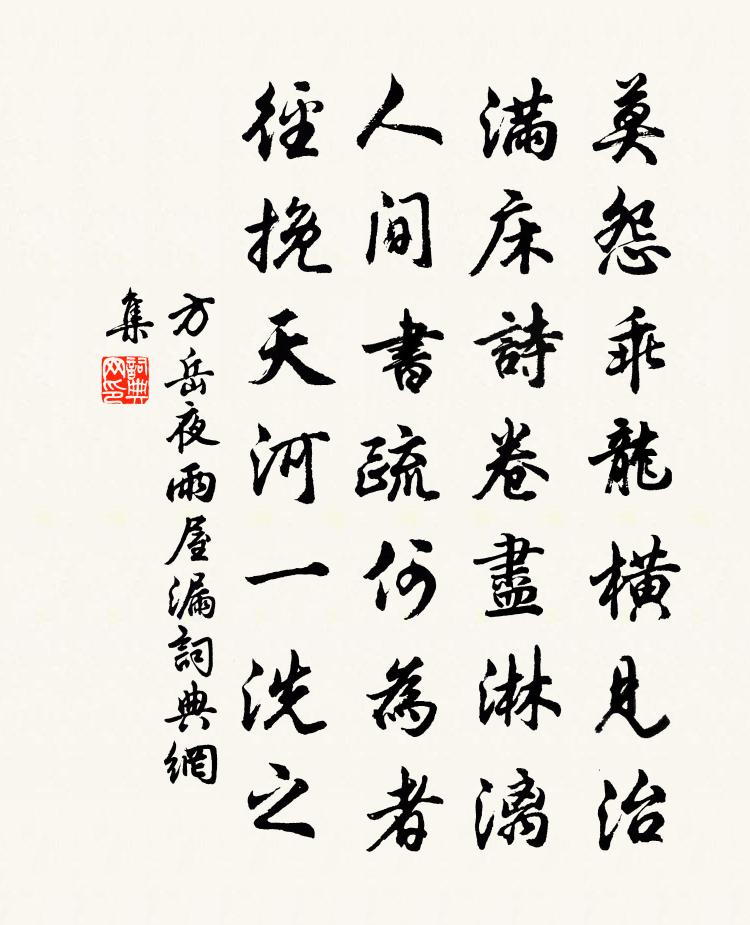 莫怨乖龍橫見治
滿床詩卷盡淋漓
人間書疏何為者
徑挽天河一洗之
方岳夜雨屋漏詞典網
集
詞典网印